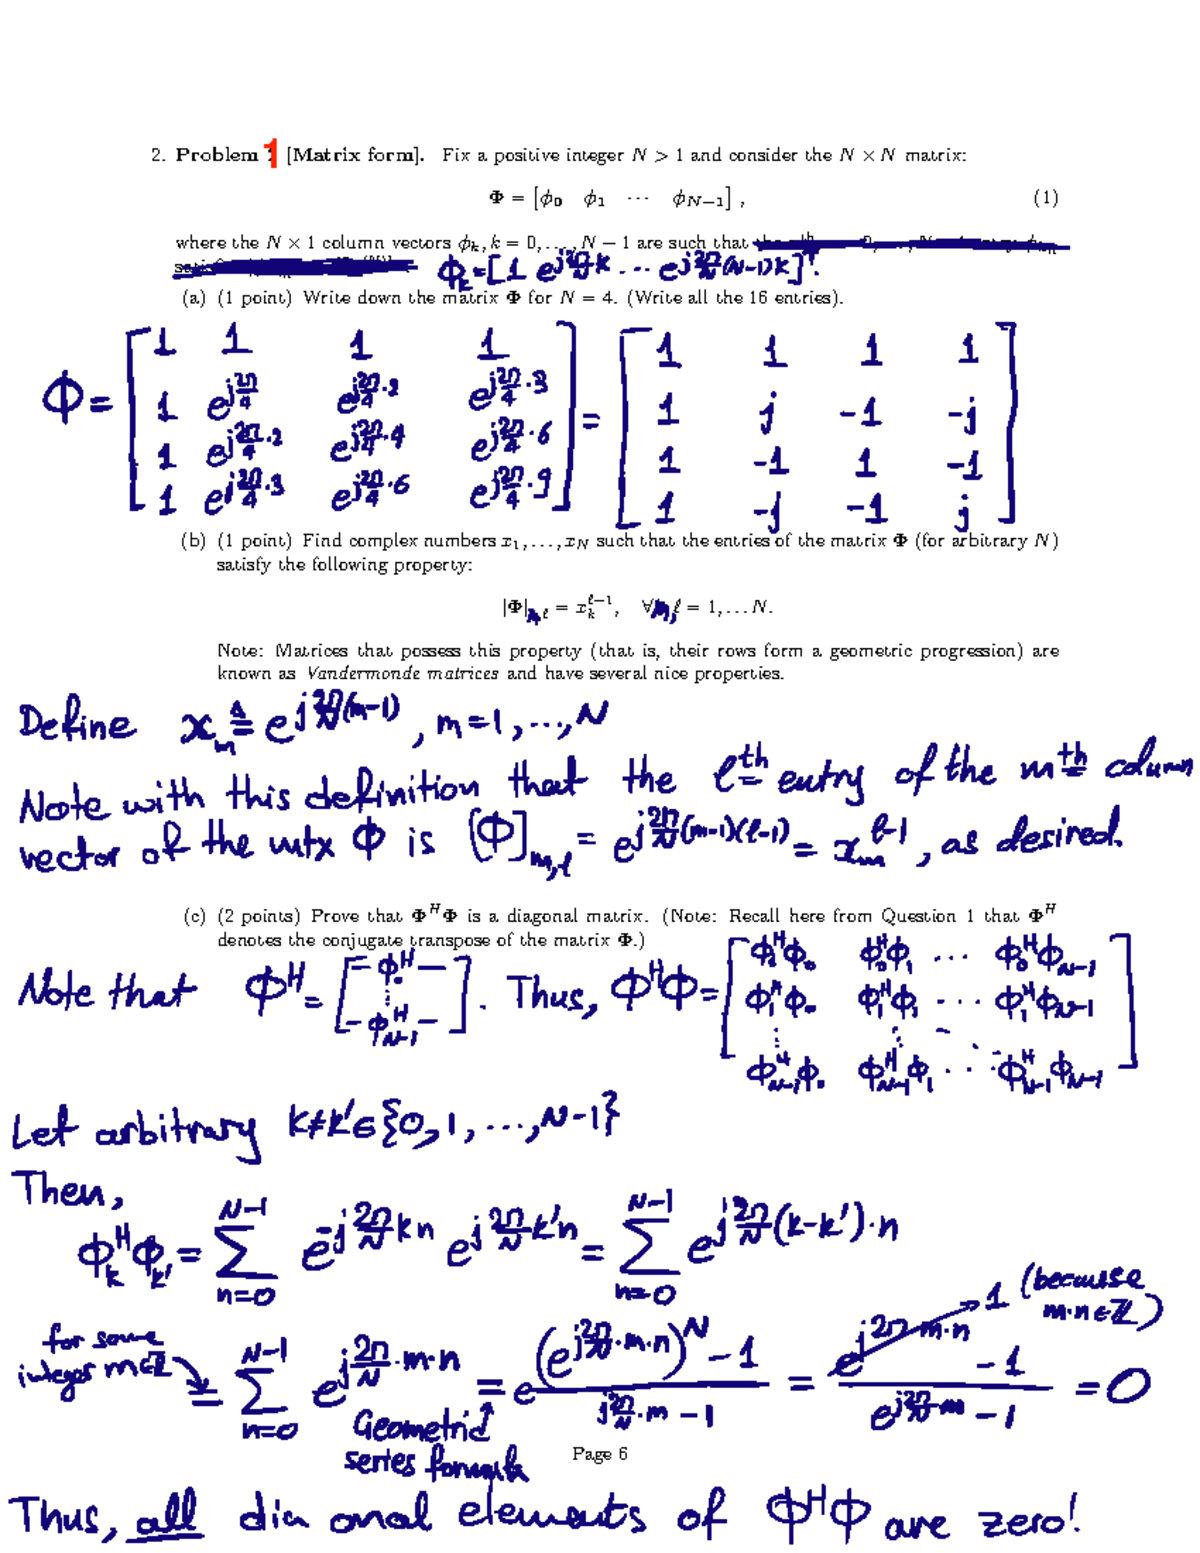 2. Problem 1 [Matrix form]. Fix a positive integer N > 1 and consider the N × N matrix:
Φ = [ϕ₀ ϕ₁ ⋯ ϕ_{N−1}] , (1)
where the N × 1 column vectors ϕ_k, k = 0, …, N − 1 are such that
ϕ_k = [1 e^{j2π/N k} … e^{j2π/N (N-1)k}]^T.
(a) (1 point) Write down the matrix Φ for N = 4. (Write all the 16 entries).
Φ = [1 1 1 1; 1 e^{j2π/4} e^{j2π/4·2} e^{j2π/4·3}; 1 e^{j2π/4·2} e^{j2π/4·4} e^{j2π/4·6}; 1 e^{j2π/4·3} e^{j2π/4·6} e^{j2π/4·9}] = [1 1 1 1; 1 j -1 -j; 1 -1 1 -1; 1 -j -1 j]
(b) (1 point) Find complex numbers x₁, …, x_N such that the entries of the matrix Φ (for arbitrary N)
satisfy the following property:
|Φ|_{m,ℓ} = x_k^{ℓ−1}, ∀m,ℓ = 1, … N.
Note: Matrices that possess this property (that is, their rows form a geometric progression) are
known as Vandermonde matrices and have several nice properties.
Define x_m ≜ e^{j2π/N (m-1)}, m=1,...,N
Note with this definition that the ℓth entry of the mth column
vector of the mtx Φ is [Φ]_{m,ℓ} = e^{j2π/N (m-1)(ℓ-1)} = x_m^{ℓ-1}, as desired.
(c) (2 points) Prove that Φ^H Φ is a diagonal matrix. (Note: Recall here from Question 1 that Φ^H
denotes the conjugate transpose of the matrix Φ.)
Note that Φ^H = [-ϕ₀^H-; ⋮; -ϕ_{N-1}^H-]. Thus, Φ^HΦ = [ϕ₀^Hϕ₀ ϕ₀^Hϕ₁ ... ϕ₀^Hϕ_{N-1}; ϕ₁^Hϕ₀ ϕ₁^Hϕ₁ ... ϕ₁^Hϕ_{N-1}; ⋮ ⋱ ϕ_{N-1}^Hϕ₀ ϕ_{N-1}^Hϕ₁ ... ϕ_{N-1}^Hϕ_{N-1}]
Let arbitrary k≠k'∈{0,1,...,N-1}
Then,
ϕ_k^H ϕ_{k'} = Σ_{n=0}^{N-1} e^{-j2π/N kn} e^{j2π/N k'n} = Σ_{n=0}^{N-1} e^{j2π/N (k-k')·n}
for some integer m∈ℤ = Σ_{n=0}^{N-1} e^{j2π/N·m·n} = ((e^{j2π/N·m·n})^N - 1)/(e^{j2π/N·m} - 1) = (e^{j2π·m·n} - 1)/(e^{j2π/N·m} - 1) = 0
→ 1 (because m·n∈ℤ)
Geometric
series formula
Page 6
Thus, all dia onal elements of Φ^HΦ are zero!